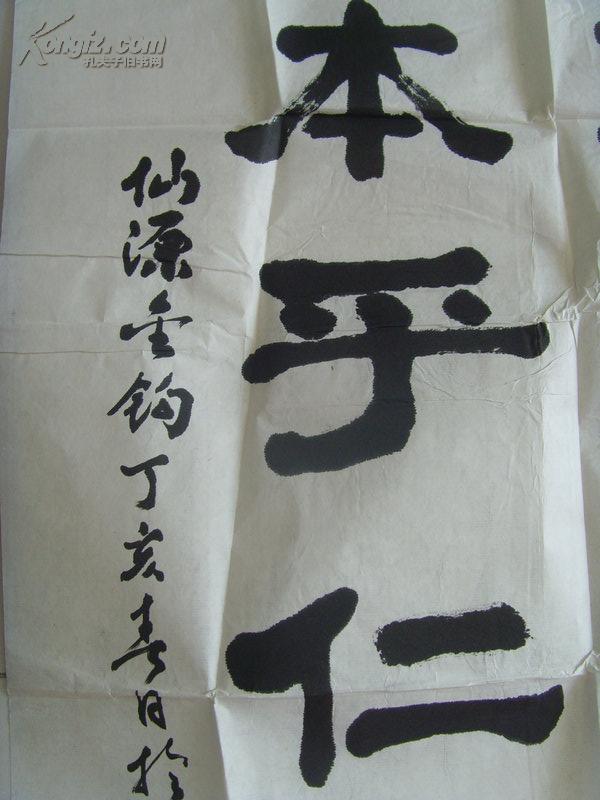 本乎仁
仙源金钩丁亥春日於
Kongfz.com
孔夫子旧书网